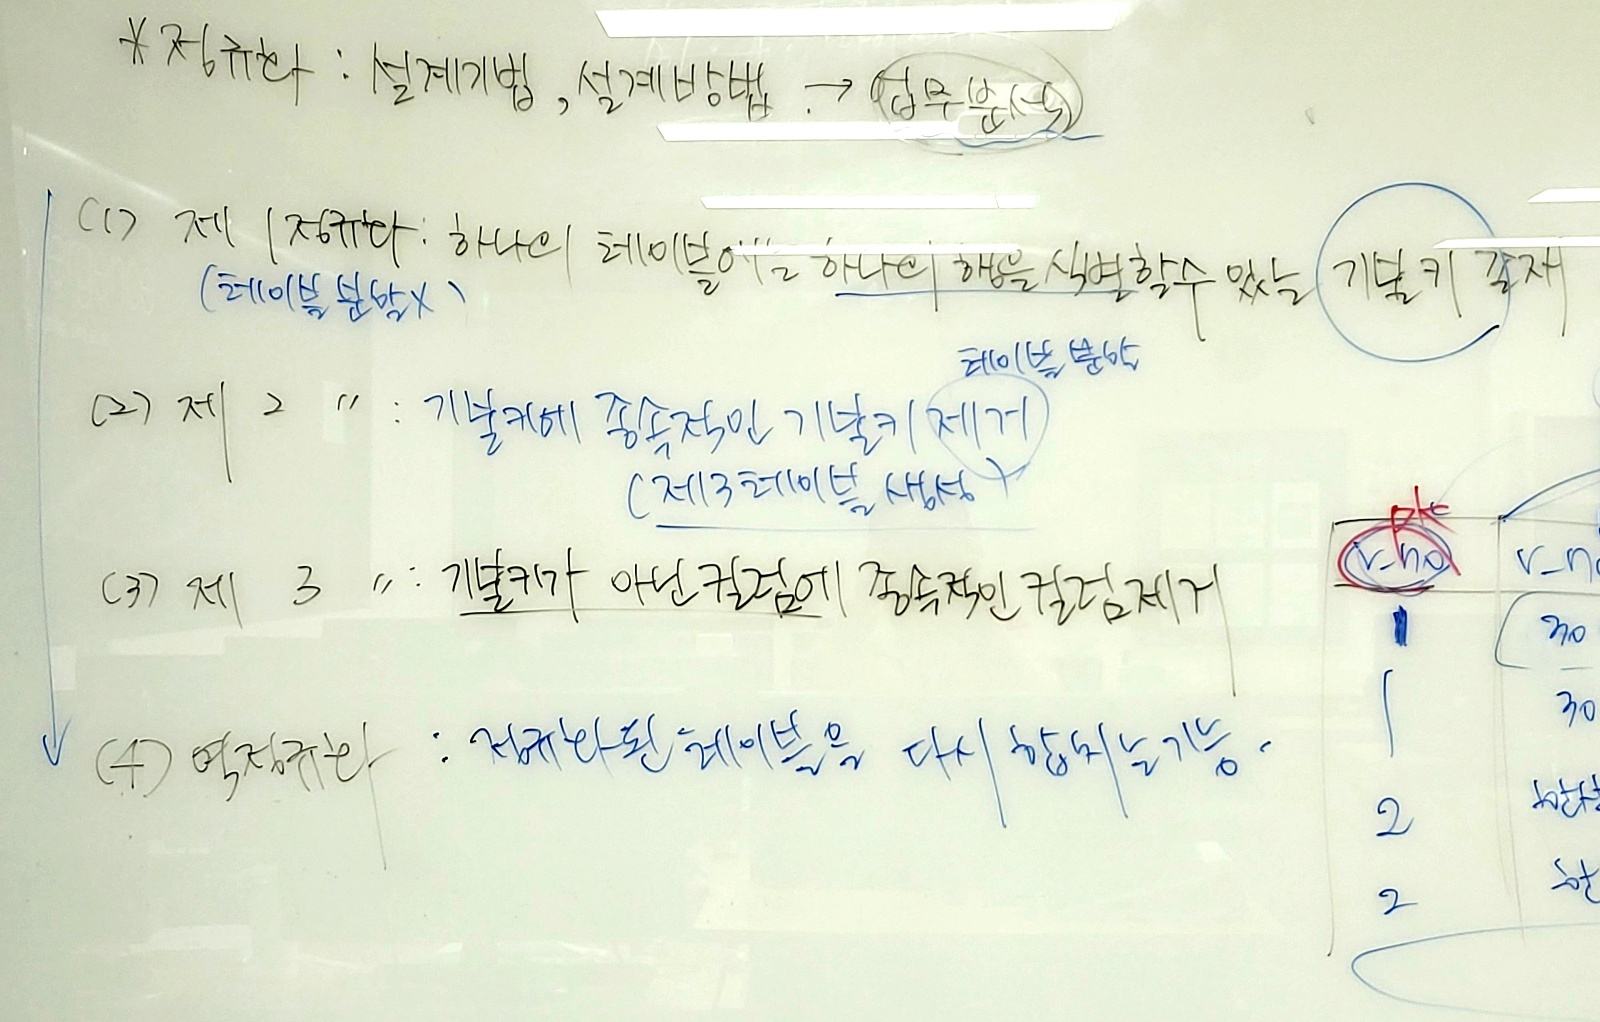 * 정규화 : 설계기법, 설계방법 → 업무분석
(1) 제 1 정규화 : 하나의 테이블에는 하나의 행을 식별할수 있는 기본키 존재
(테이블 분할X)
테이블 분할
(2) 제 2 〃 : 기본키에 종속적인 기본키 제거
(제3테이블 생성)
(3) 제 3 〃 : 기본키가 아닌 컬럼에 종속적인 컬럼 제거
(4) 역정규화 : 정규화된 테이블을 다시 합치는 기능.
pk
v_no v_no
1 30
1 30
2
2